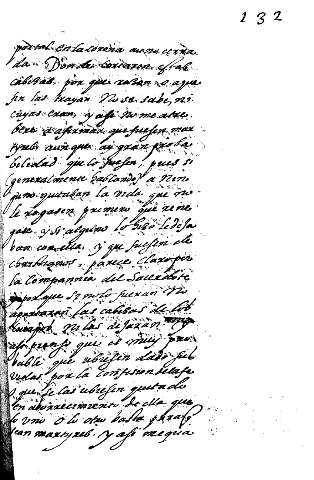 132
portal en la correa menu cerra
da. Donde cortaron estas
cabeças, por que razon o a que
fin las trayan no se sabe, ni
cuyas eran, y assi no me atre
bere a afirmar que fuesen mar
tyres aunque ay gran proba
belidad que lo fuesen, pues si
generalmente hablando, a nin
guno quitaban la vida que no
le rogasen primero que rene
gase, y si alguino lo hiço le deja
ban con ella, y que fuesen de
christianos, parece claro por
la compannia del Sacerdote
porque si no lo fueran no
apartaran las cabeças de
no las dejaran
assi pienso que es muy pro
bable que ubiesen dado sus
vidas por la confesion de la fe
y que se las ubiesen quitado
en aborrecimiento de ella que
lo uno o lo otro basta para q
sean martyres. y assi me qua